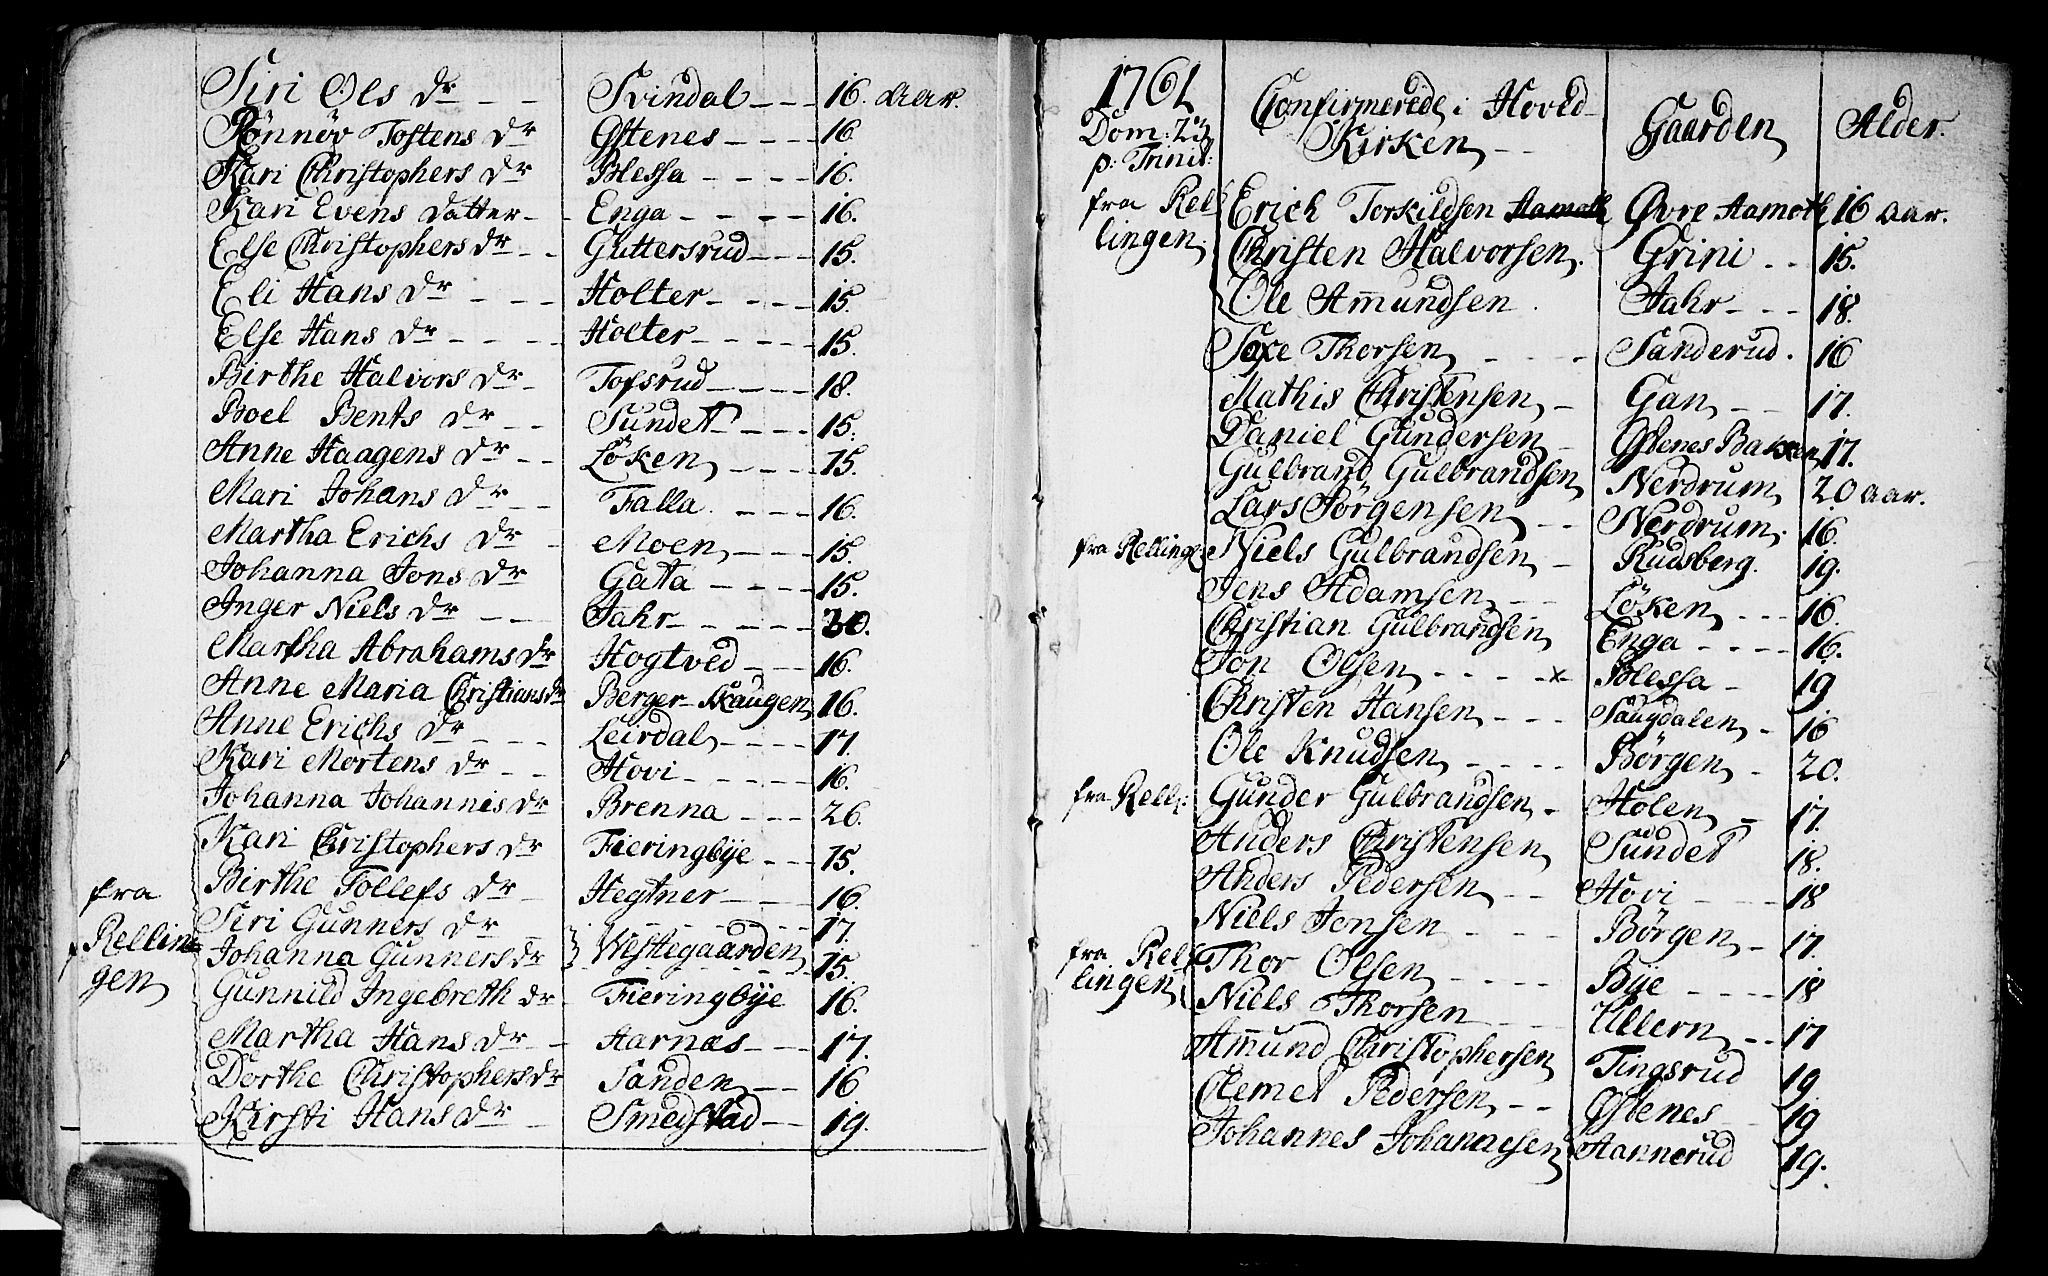 Siri Ols dr - - - Svindal - - - 16. aar.
Rønnøv Tostens dr Østenes - - - - 16
Kari Christophers dr Blessa - - - - 16.
Kari Evens datter - - Enga - - - - 16.
Else Christophers dr - - Guttersrud - - - 15.
Eli Hans dr - - - Holter - - - - 15.
Else Hans dr - - - - Holter - - - - - 15.
Birthe Halvors dr - Tofsrud - - - - 18.
Boel Bents dr - - Sundet - - - - 15.
Anne Haagens dr - - Löken - - - - 15.
Mari Johans dr - - Falla. - - - - 16.
Martha Erichs dr - Moen - - - - 15.
Johanna Jons dr Gata - - - - 15.
Inger Niels dr - - - Jahr - - - - - 20.
Martha Abrahams dr Hogtved - - - 16.
Anne Maria Christians dr Berger-Skaugen 16.
Anne Erichs dr - - - Leirdal - - - - 17.
Kari Mortens dr - - Hovi - - - - - 16.
Johanna Johannis dr Brenna - - - 26.
Kari Christophers dr Fieringbÿe - - - 15.
fra Birthe Tollefs dr - Hegtner - - - - 16.
Siri Gunners dr - - - - - - - - 17.
Rellin= Johanna Gunners dr } Westegaarden 15.
gen Gunnild Ingebreth dr - Fieringbÿe 16.
Martha Hans dr - - Aarnæs - - - 17.
Dorthe Christophers dr Sanden - - - 16
Kirsti Hans dr - Smedstad - - 19.
1761
Dom: 23 Confirmerede i Hoved- Gaarden Alder.
p: Trinit: Kirken - -
fra Rel= Erich Torkildsen Øvre Aamoth 16 aar.
lingen. Christen Halvorsen. Grini - - 15.
Ole Amundsen. Jahr - - - 18.
Saxe Thorsen - - - - Sanderud. 16
Mathis Christensen - Gan - - - 17.
Daniel Gundersen - Østenes Bakken 17.
Gulbrand Gulbrandsen Nerdrum 20 aar.
Lars Jörgensen - - Nerdrum. 16.
fra Rellinge Niels Gulbrandsen - Rudsberg. 19.
Jens Adamsen - - - Löken - - - 16.
Christian Gulbrandsen Enga - - - - 16.
Jon Olsen - - - - x Blessa - 19
Christen Hansen - - - Saugdalen - 16
Ole Knudsen - - - - Börgen - 20.
fra Rell: Gunder Gulbrandsen - Holen - 17.
Anders Christensen Sundet 18.
Anders Pedersen - - Hovi - - - - 18
Niels Jonsen - - - Börgen - 17.
fra Rel= Thor Olsen - - - - Bÿe - - - - 18
lingen Niels Thorsen - - - Ullern - - 17
Amund Christophersen Tingsrud 19
Clemet Pedersen - - Østenes - 19
Johannes Johannesen Aannerud 19.